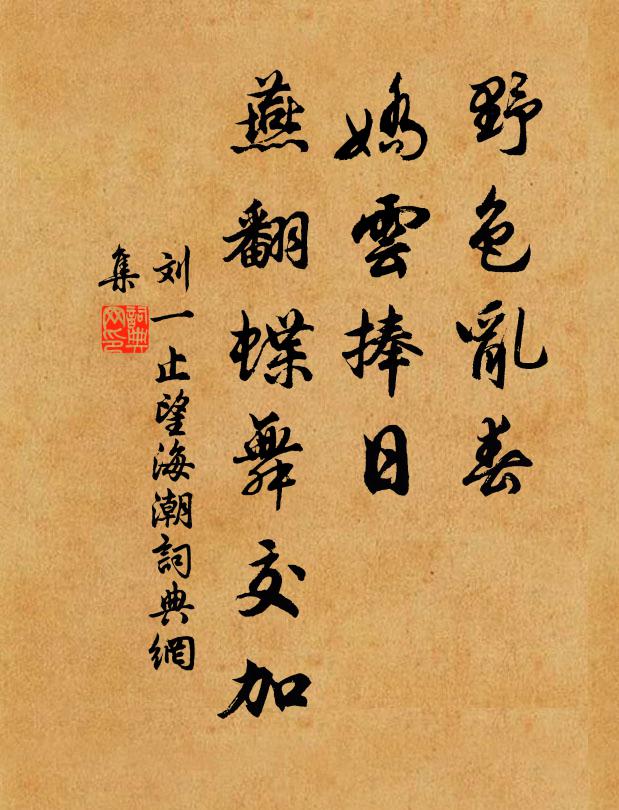 野色亂春
嬌雲捧日
燕翻蝶舞交加
刘一止望海潮詞典網
集
詞典
网印